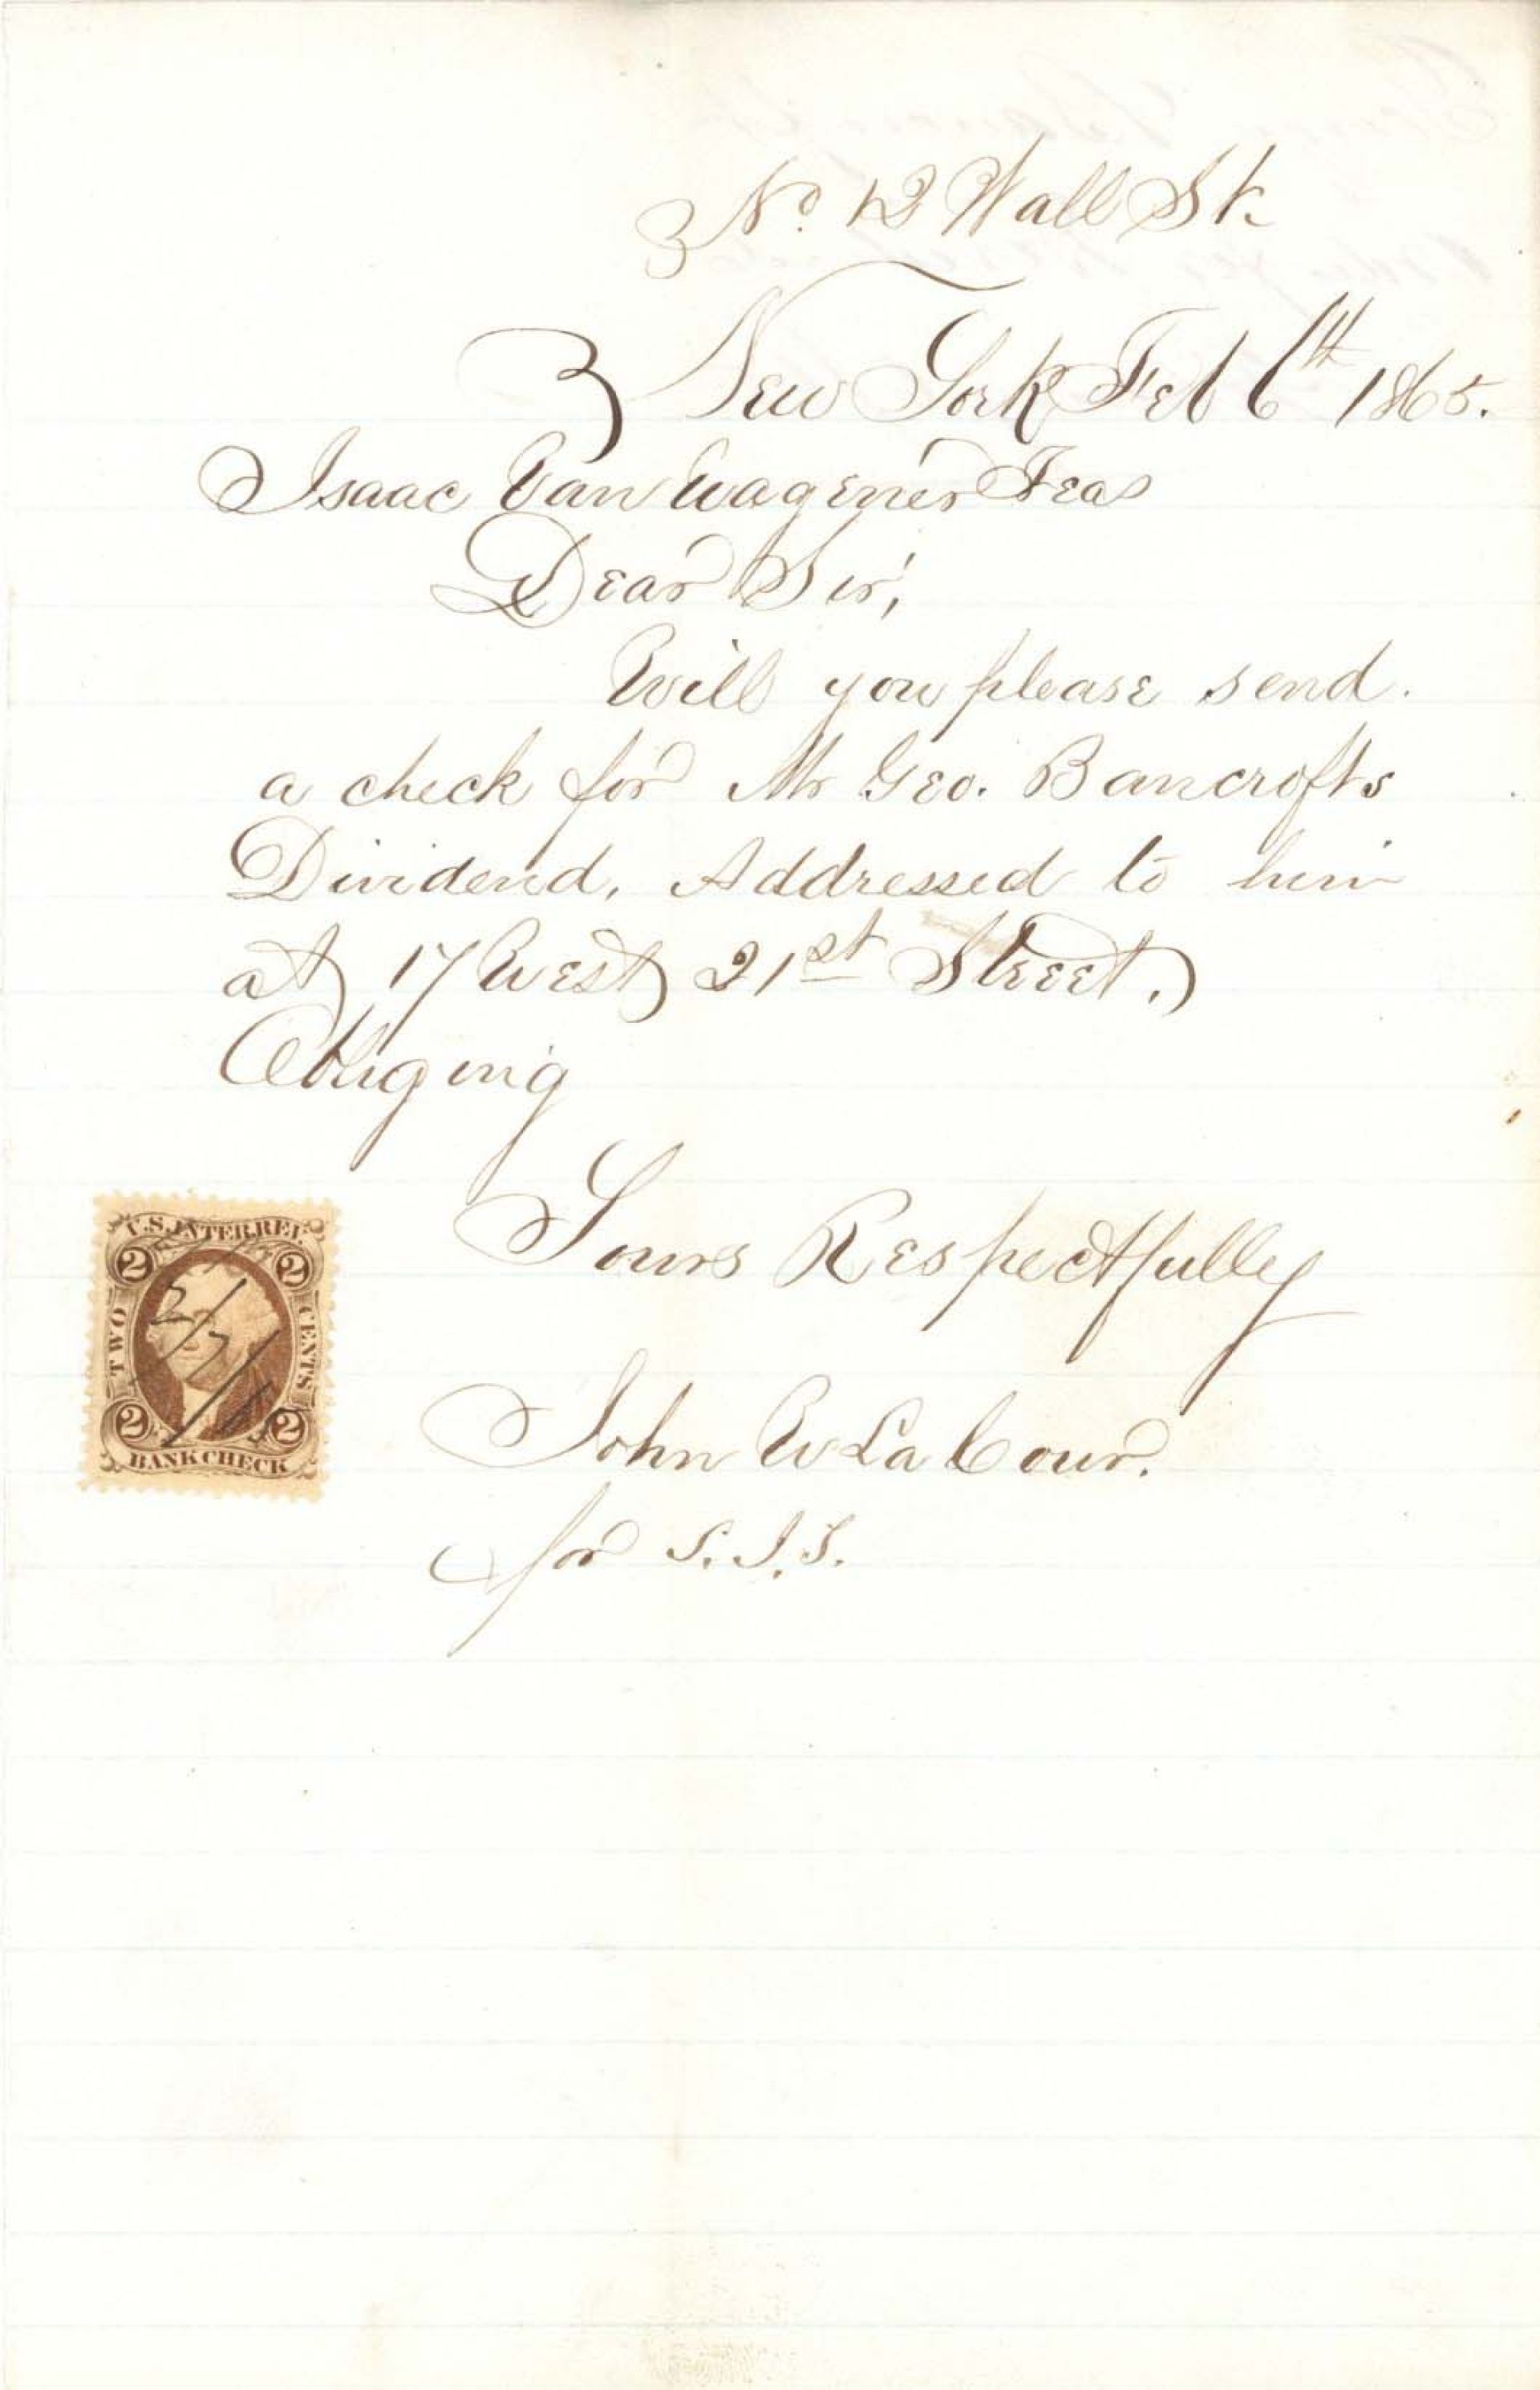 No. 12 Wall St.
New York Feb 6th 1865.
Isaac Van Wagener Treas
Dear Sir,
Will you please send
a check for Mr Geo. Bancrofts
Dividend. Addressed to him
at 17 West 21st Street.
Obliging
Yours Respectfully
John W La Cour.
for S.I.S.
U.S. INTER. REV.
2 2
TWO CENTS
2/7/65
2 2
BANK CHECK